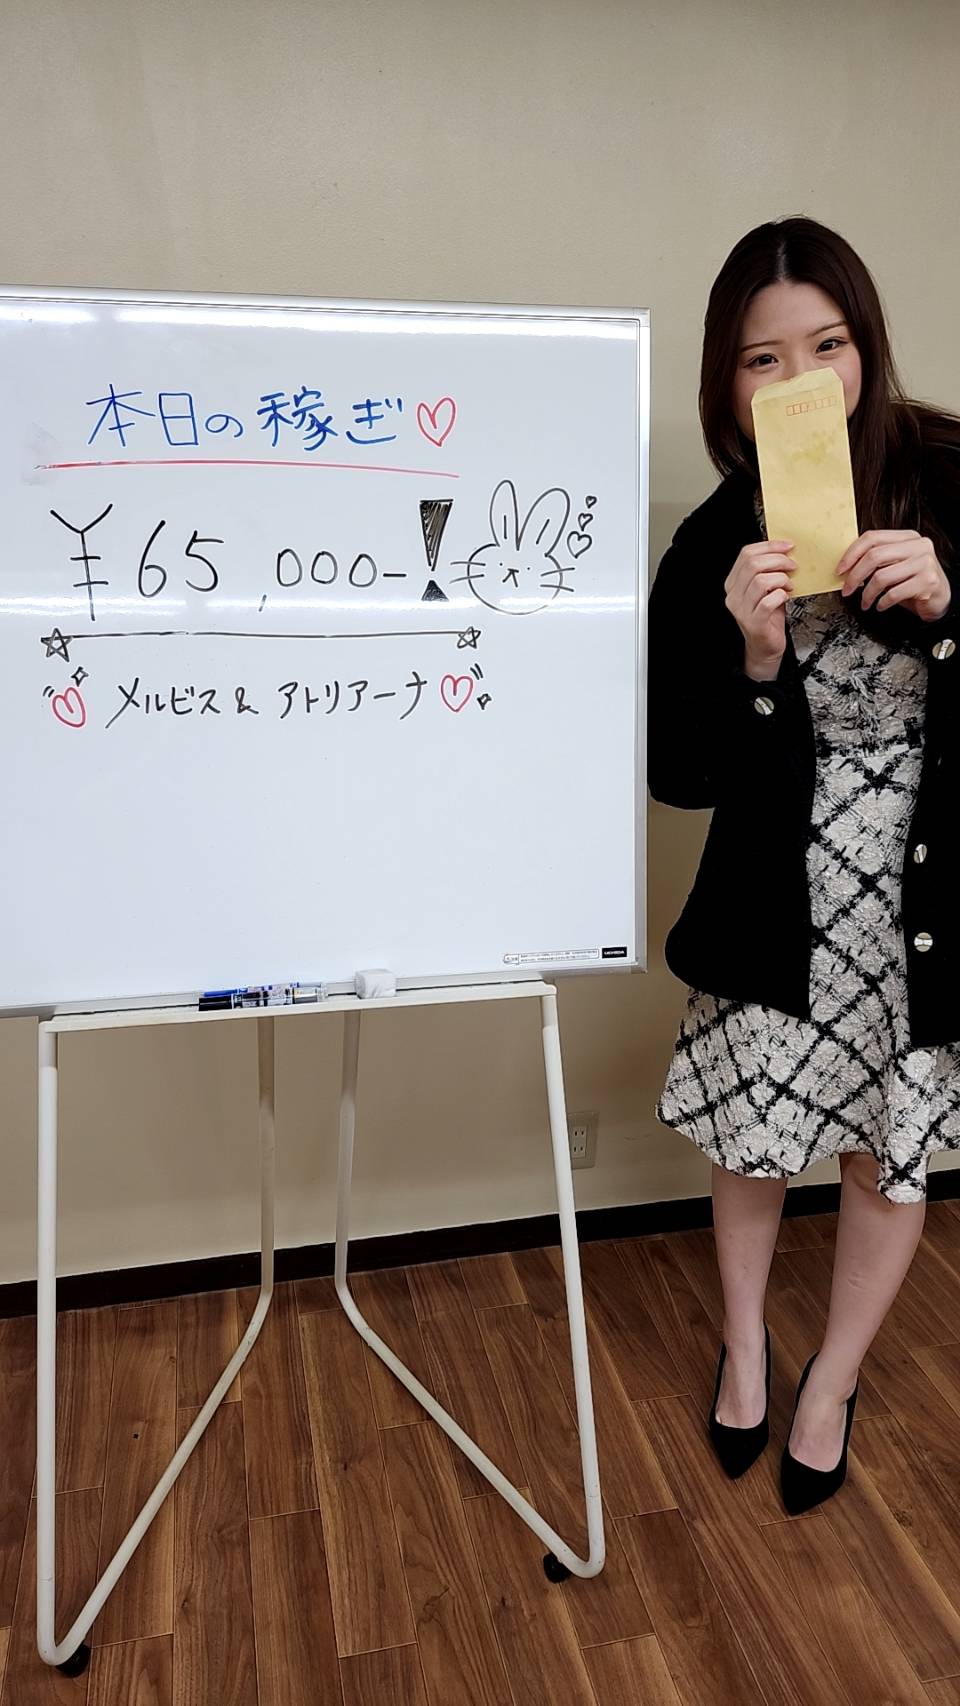 本日の稼ぎ♡
¥65,000-!
☆ ☆
♡メルビス&アトリアーナ♡